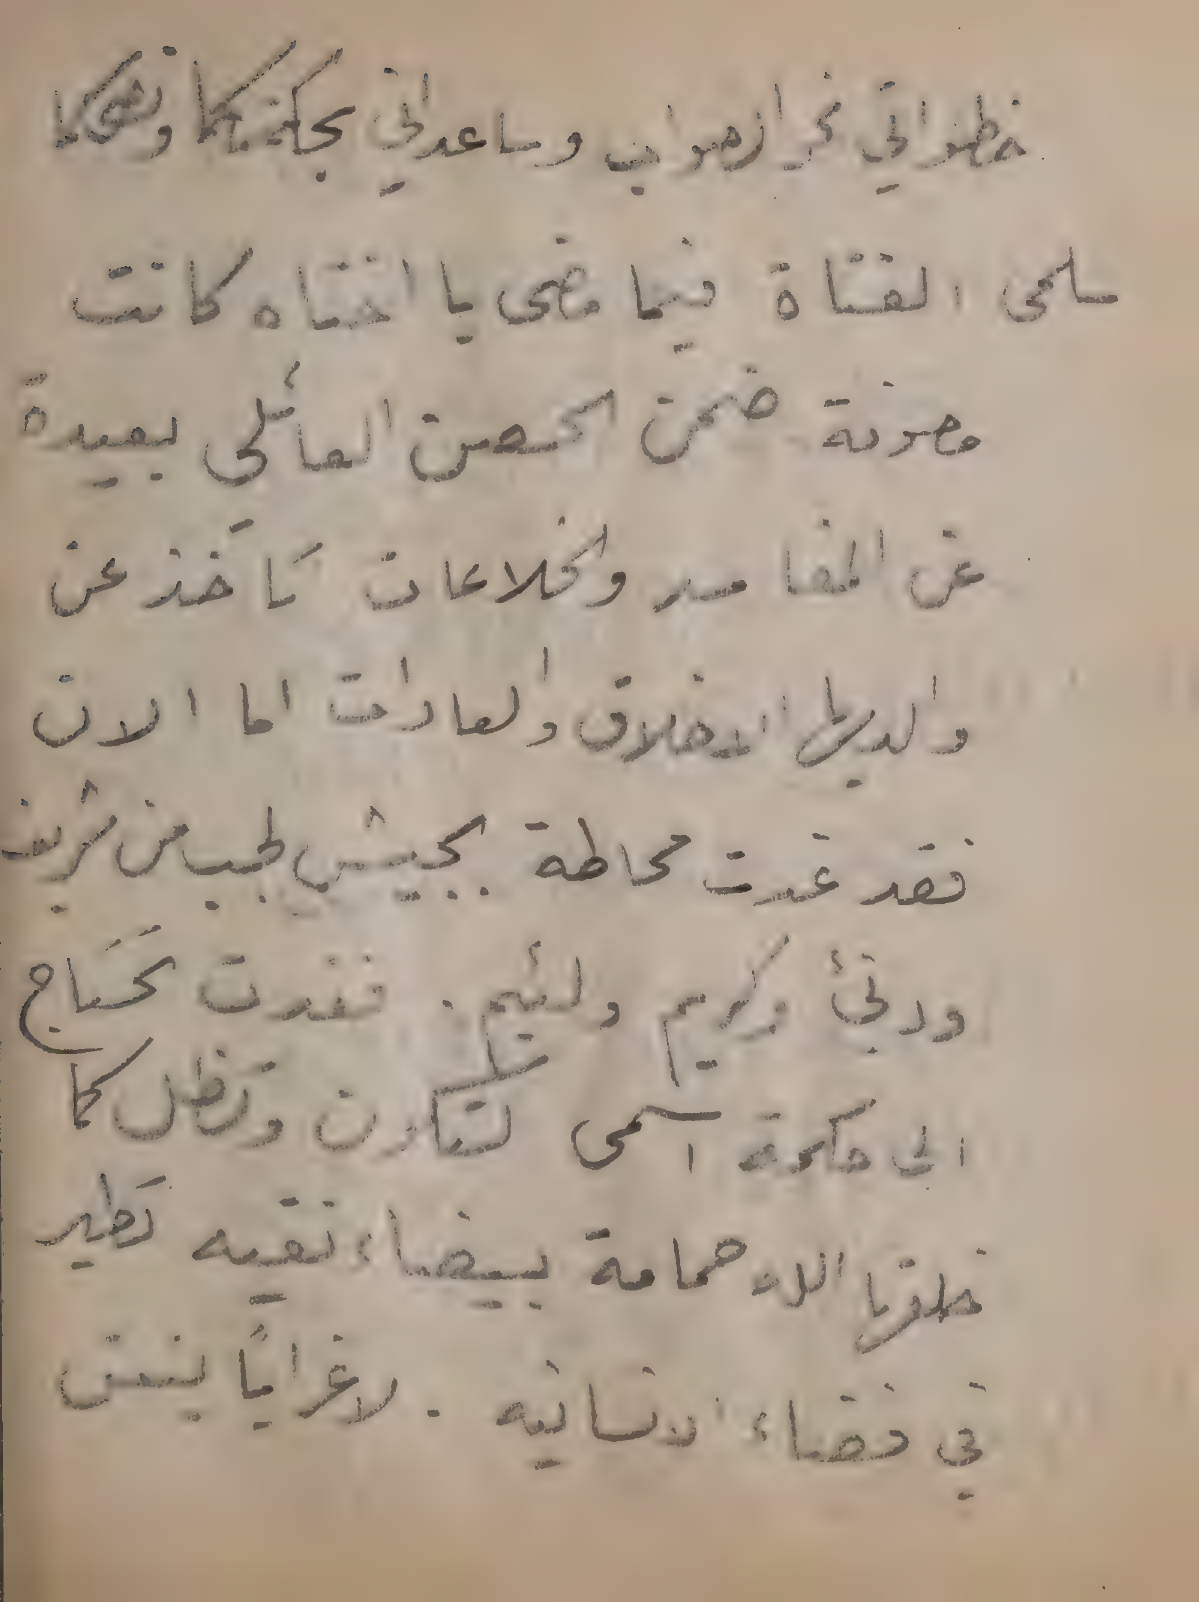 خطواتي نحو الصواب وساعداني بحكمتكما ونصحكما
سلمى الفتاة فيما مضى يا اختاه كانت
مصونة ضمن الحصن العائلي بعيدة
عن المفاسد والخلاعات تأخذ عن
والديها الاخلاق والعادات اما الان
فقد غدت محاطة بجيش لجب من شريف
ودنئ وكريم ولئيم . فغدت تحتاج
الى حكمة اسمى لتكون وتظل كما
خلقها الله حمامة بيضاء نقيه تطير
في فضاء الانسانيه . لا غراباً ينعق